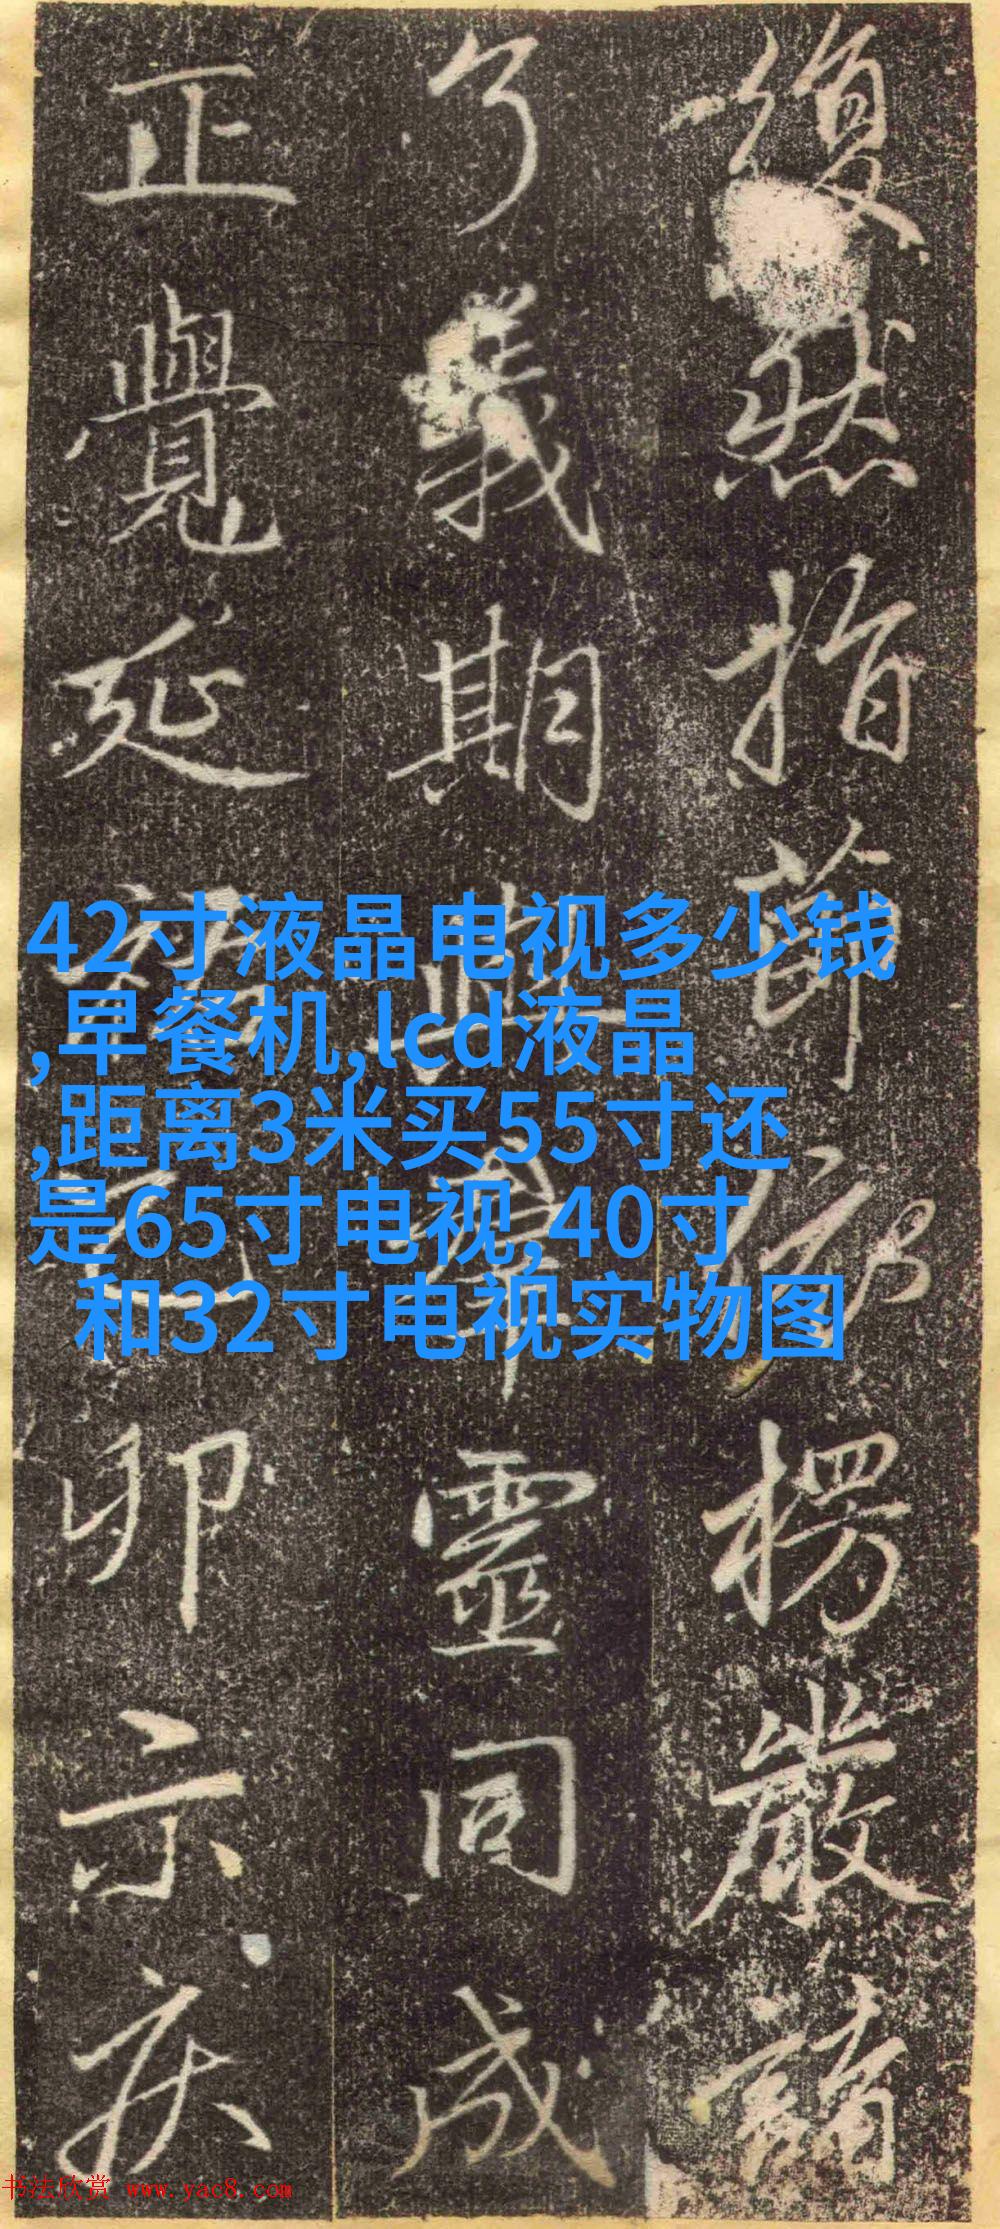 復然指節楞嚴
了義期與羣靈同成
正覺延福乙卯示疾
42寸液晶电视多少钱
,早餐机,lcd液晶
,距离3米买55寸还
是65寸电视,40寸
和32寸电视实物图
书法欣赏 www.yac8.com